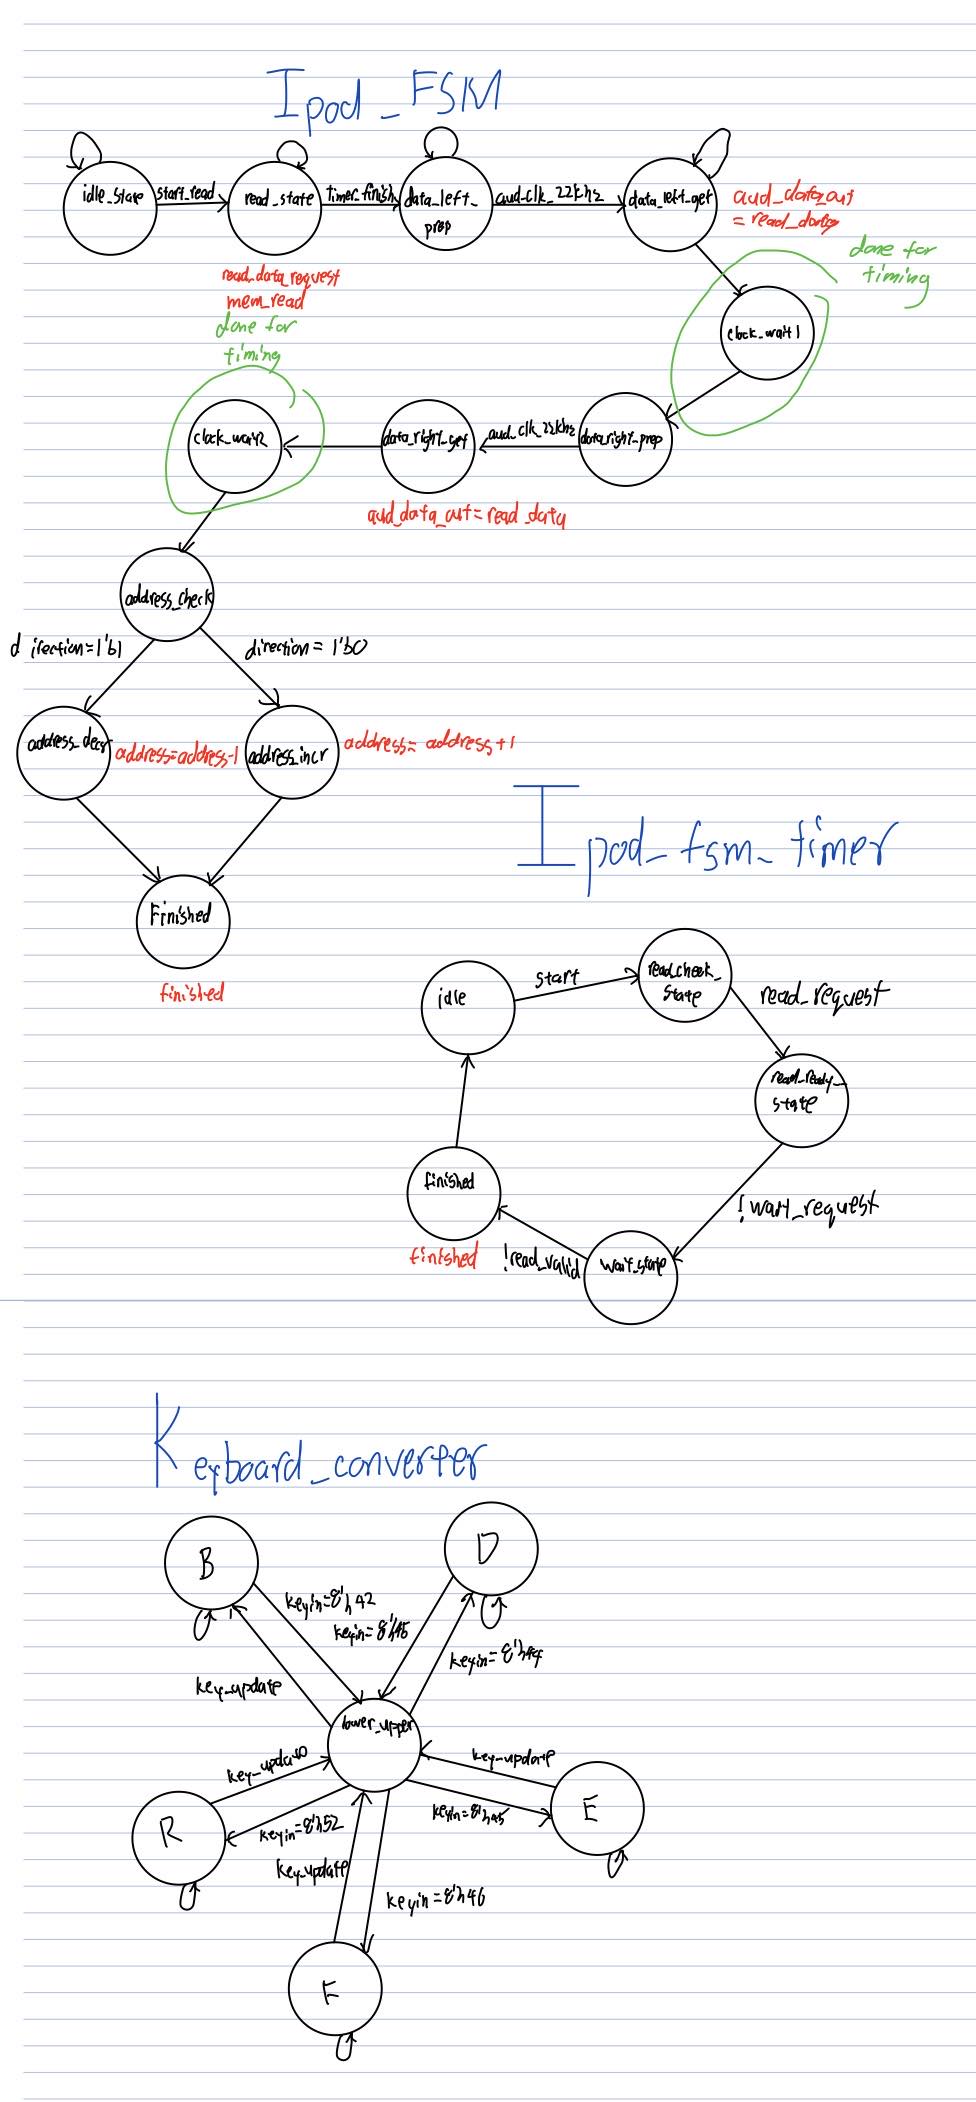 Ipod_FSM
idle_state
start_read
read_state
timer_finish
data_left_
prep
aud_clk_22khz
data_left_get
aud_data_out
= read_data
read_data_request
mem_read
done for
timing
done for
timing
clock_wait1
clock_wait2
data_right_get
aud_clk_22khz
data_right_prep
aud_data_out = read_data
address_check
direction = 1'b1
direction = 1'b0
address_decr
address=address-1
address_incr
address= address+1
Finished
finished
Ipod_fsm_timer
idle
start
read_check_
state
read_request
read_ready_
state
!wait_request
finished
finished
!read_valid
wait_state
Keyboard_converter
B
D
keyin=8'h42
keyin=8'h45
keyin=8'h44
key_update
lower_upper
key_update
key_update
R
keyin=8'h52
keyin=8'h45
E
key_update
keyin=8'h46
F